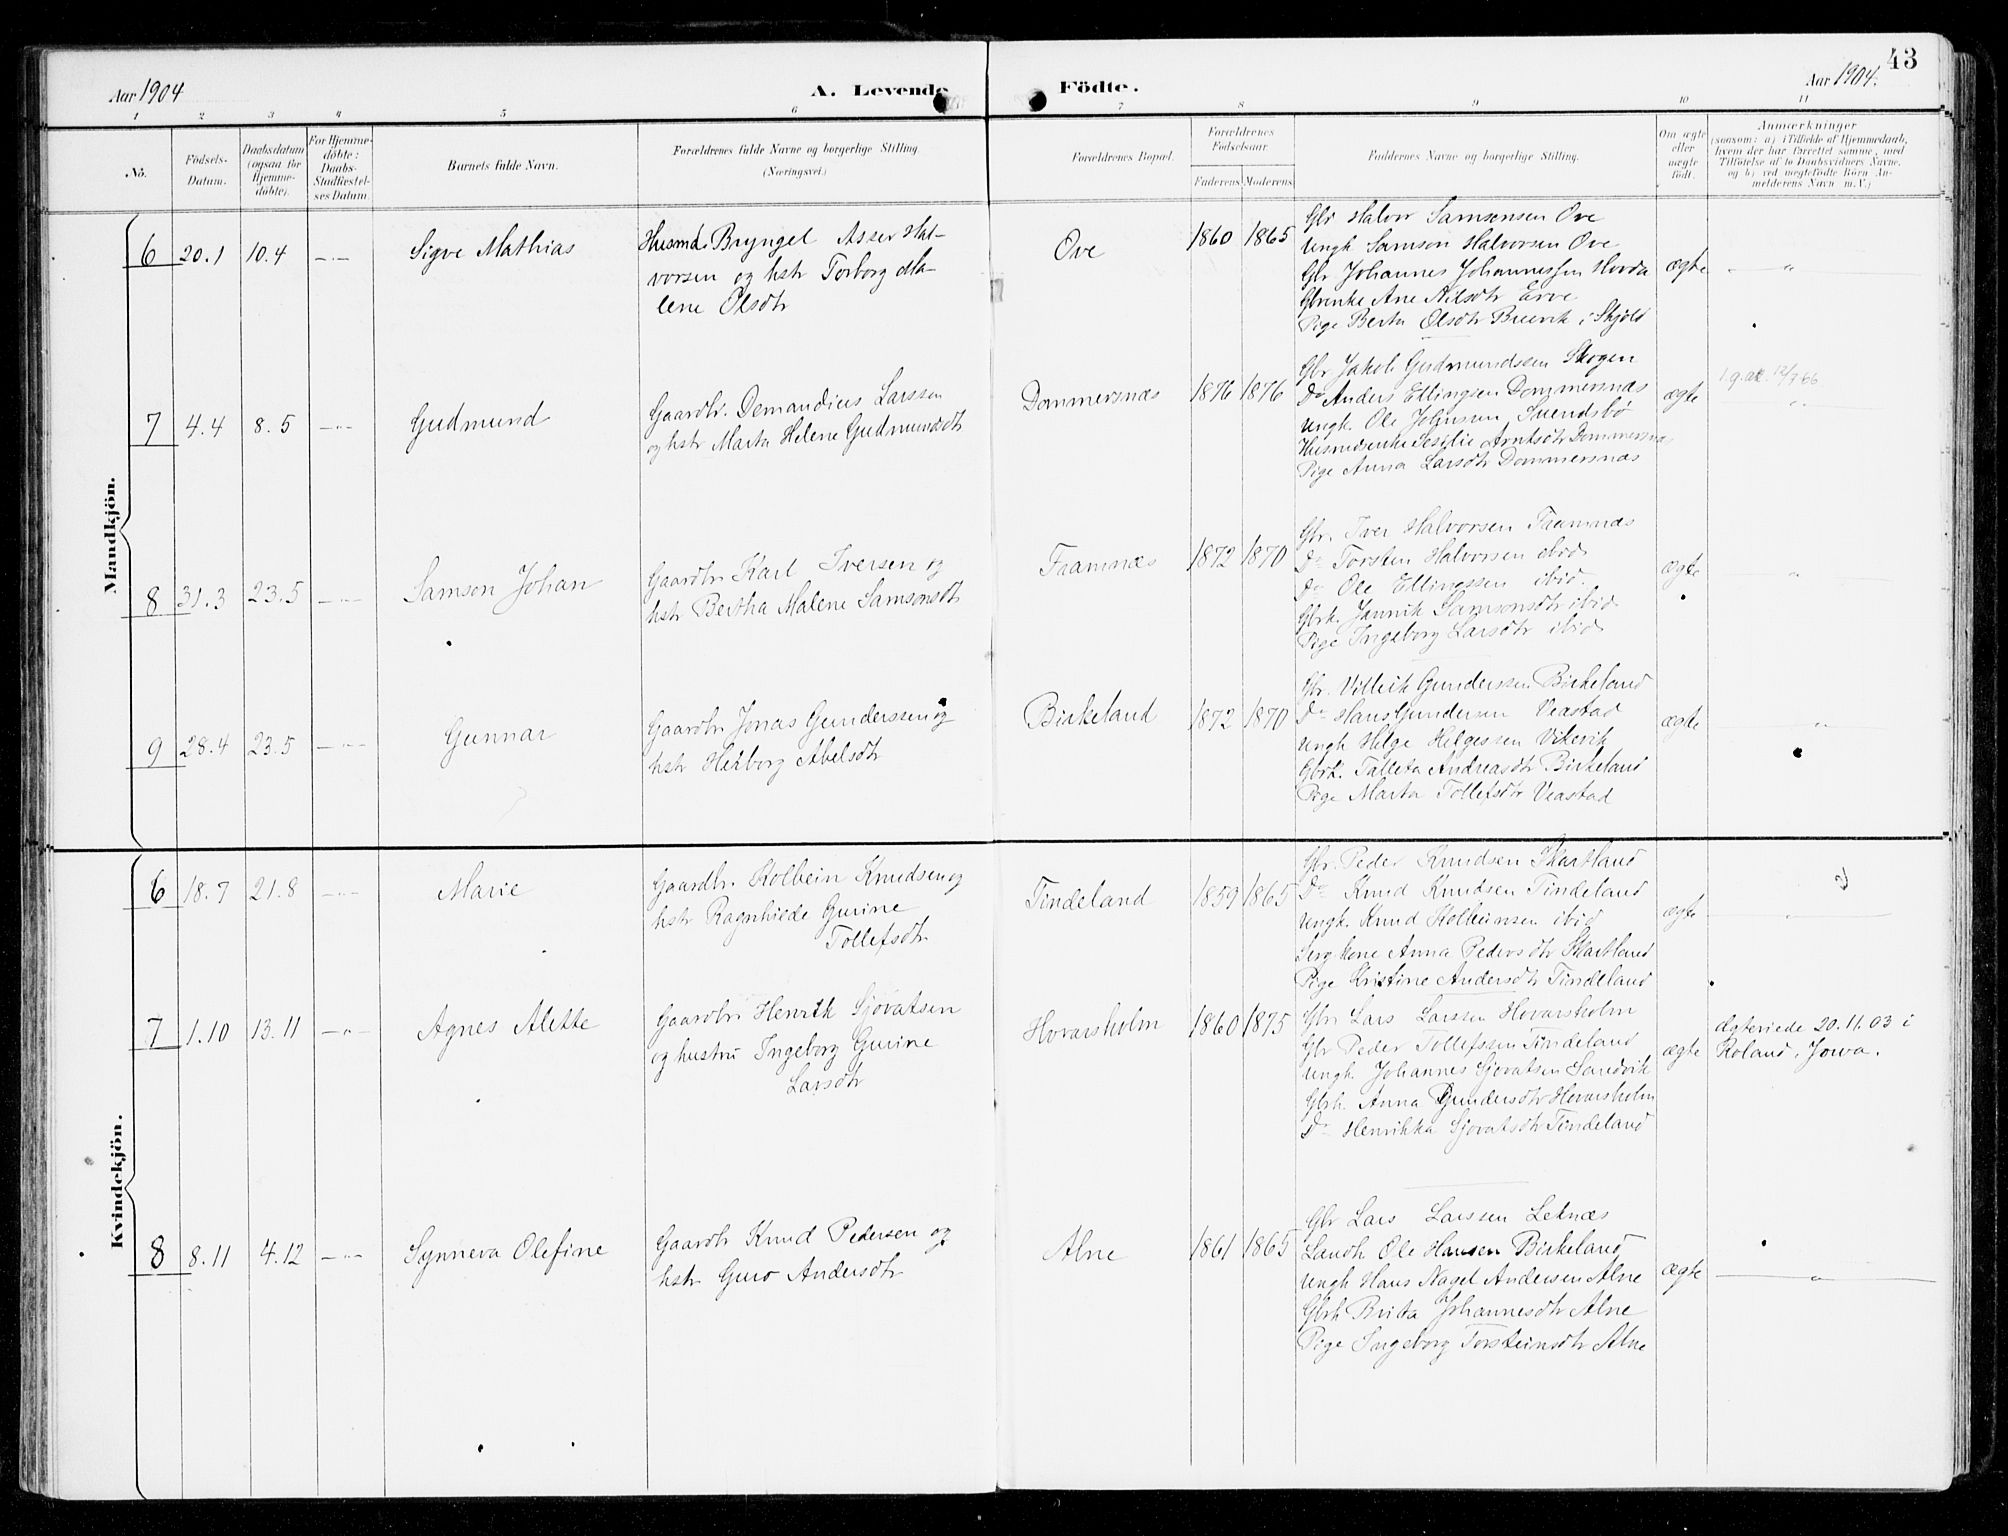 43
Aar 1904
A. Levende
Födte.
Aar 1904.
1 2 3 4 5 6 7 8 9 10 11
No.
Födsels-
Datum.
Daabsdatum
(ogsaa for
Hjemme-
döbte).
For Hjemme-
döbte:
Daabs-
Stadfæstel-
ses Datum.
Barnets fulde Navn.
Forældrenes fulde Navne og borgerlige Stilling.
(Næringsvei.)
Forældrenes Bopæl.
Forældrenes
Födselsaar.
Faderens Moderens
Faddernes Navne og borgerlige Stilling.
Om ægte
eller
uægte
födt.
Anmærkninger
(saasom: a) i Tilfælde af Hjemmedaab,
hvem der har forrettet samme, med
Tilföielse af to Daabsvidners Navne,
og b) ved uegtefödte Börn An-
melderens Navn m. V.;)
Mandkjön.
6 20.1 10.4 —"—
Sigve Mathias
Husmd. Bryngel Asser Hal-
vorsen og hstr Torborg Ma-
lene Olsdtr
Ove
1860 1865
Gbr Halvor Samsonsen Ove
Ungk Samson Halvorsen Ove
Gbr Johannes Johannessen Hovda
Gbrenke Ane Nilsdtr Erve
Pige Berta Olsdtr Brevik i Skjold
ægte — " —
7 4.4 8.5 —"—
Gudmund
Gaardbr. Demandius Larssen
og hstr Marta Helene Gudmundsdtr
Dommersnæs
1876 1876
Gbr Jakob Gudmundssen Skogen
Do Anders Ellingsen Dommersnæs
Ungk Ole Johnsen Svendsbö
Husmdsenke Sesilie Arntsdtr Dommersnæs
Pige Anna Larsdtr Dommersnæs
ægte
l.g.at. 12/7 66
"
8 31.3 23.5 —"—
Samson Johan
Gaardbr Karl Iversen og
hstr Bertha Malene Samsonsdtr
Framnæs
1872 1870
Gbr. Iver Halvorsen Framnæs
Do Torsten Halvorsen ibid
Do Ole Ellingssen ibid.
Gbrk. Jannik Samsonsdtr ibid
Pige Ingeborg Larsdtr ibid
ægte "
9 28.4 23.5 —"—
Gunnar
Gaardbr Jonas Gunderssen og
hstr Herborg Abelsdtr
Birkeland
1872 1870
Gbr. Villeik Gunderssen Birkeland
Do Hans Gundersen Veastad
Ungk Helge Helgessen Vikevik
Gbrk. Talleta Andreasdtr Birkeland
Pige Marta Tollefsdtr Veastad
ægte "
Kvindekjön.
6 18.7 21.8 —"—
Marie
Gaardbr. Kolbein Knudsen og
hstr Ragnhilde Gurine
Tollefsdtr
Tindeland
1859 1865
Gbr. Peder Knudsen Skartland
Do Knud Knudsen Tindeland
Ungk. Knud Kolbeinsen ibid
Kone Anna Pedersdtr Skartland
Pige Kristine Andersdtr Tindeland
ægte "
7 1.10 13.11 —"—
Agnes Alette
Gaardbr Henrik Sjovatsen
og hustru Ingeborg Gurine
Larsdtr
Hovarsholm
1860 1875
Gbr Lars Larssen Hovarsholm
Gbr Peder Tollefssen Tindeland
Ungk. Johannes Sjovatsen Sandvik
Gbrk. Anna Gundersdtr Hovarsholm
Do Henrikka Sjovatsdtr Tindeland
ægte
Ægteviede 20.11.03 i
Roland, Jowa.
8 8.11 4.12 —"—
Synneva Olefine
Gaardbr Knud Pedersen og
hstr Guro Andersdtr
Alne
1861 1865
Gbr Lars Larssen Leknæs
Landh Ole Hansen Birkeland
Ungk Hans Nagel Andersen Alne
Gbrk Brita Johannesdtr Alne
Pige Ingeborg Torsteinsdtr Alne
ægte — " —